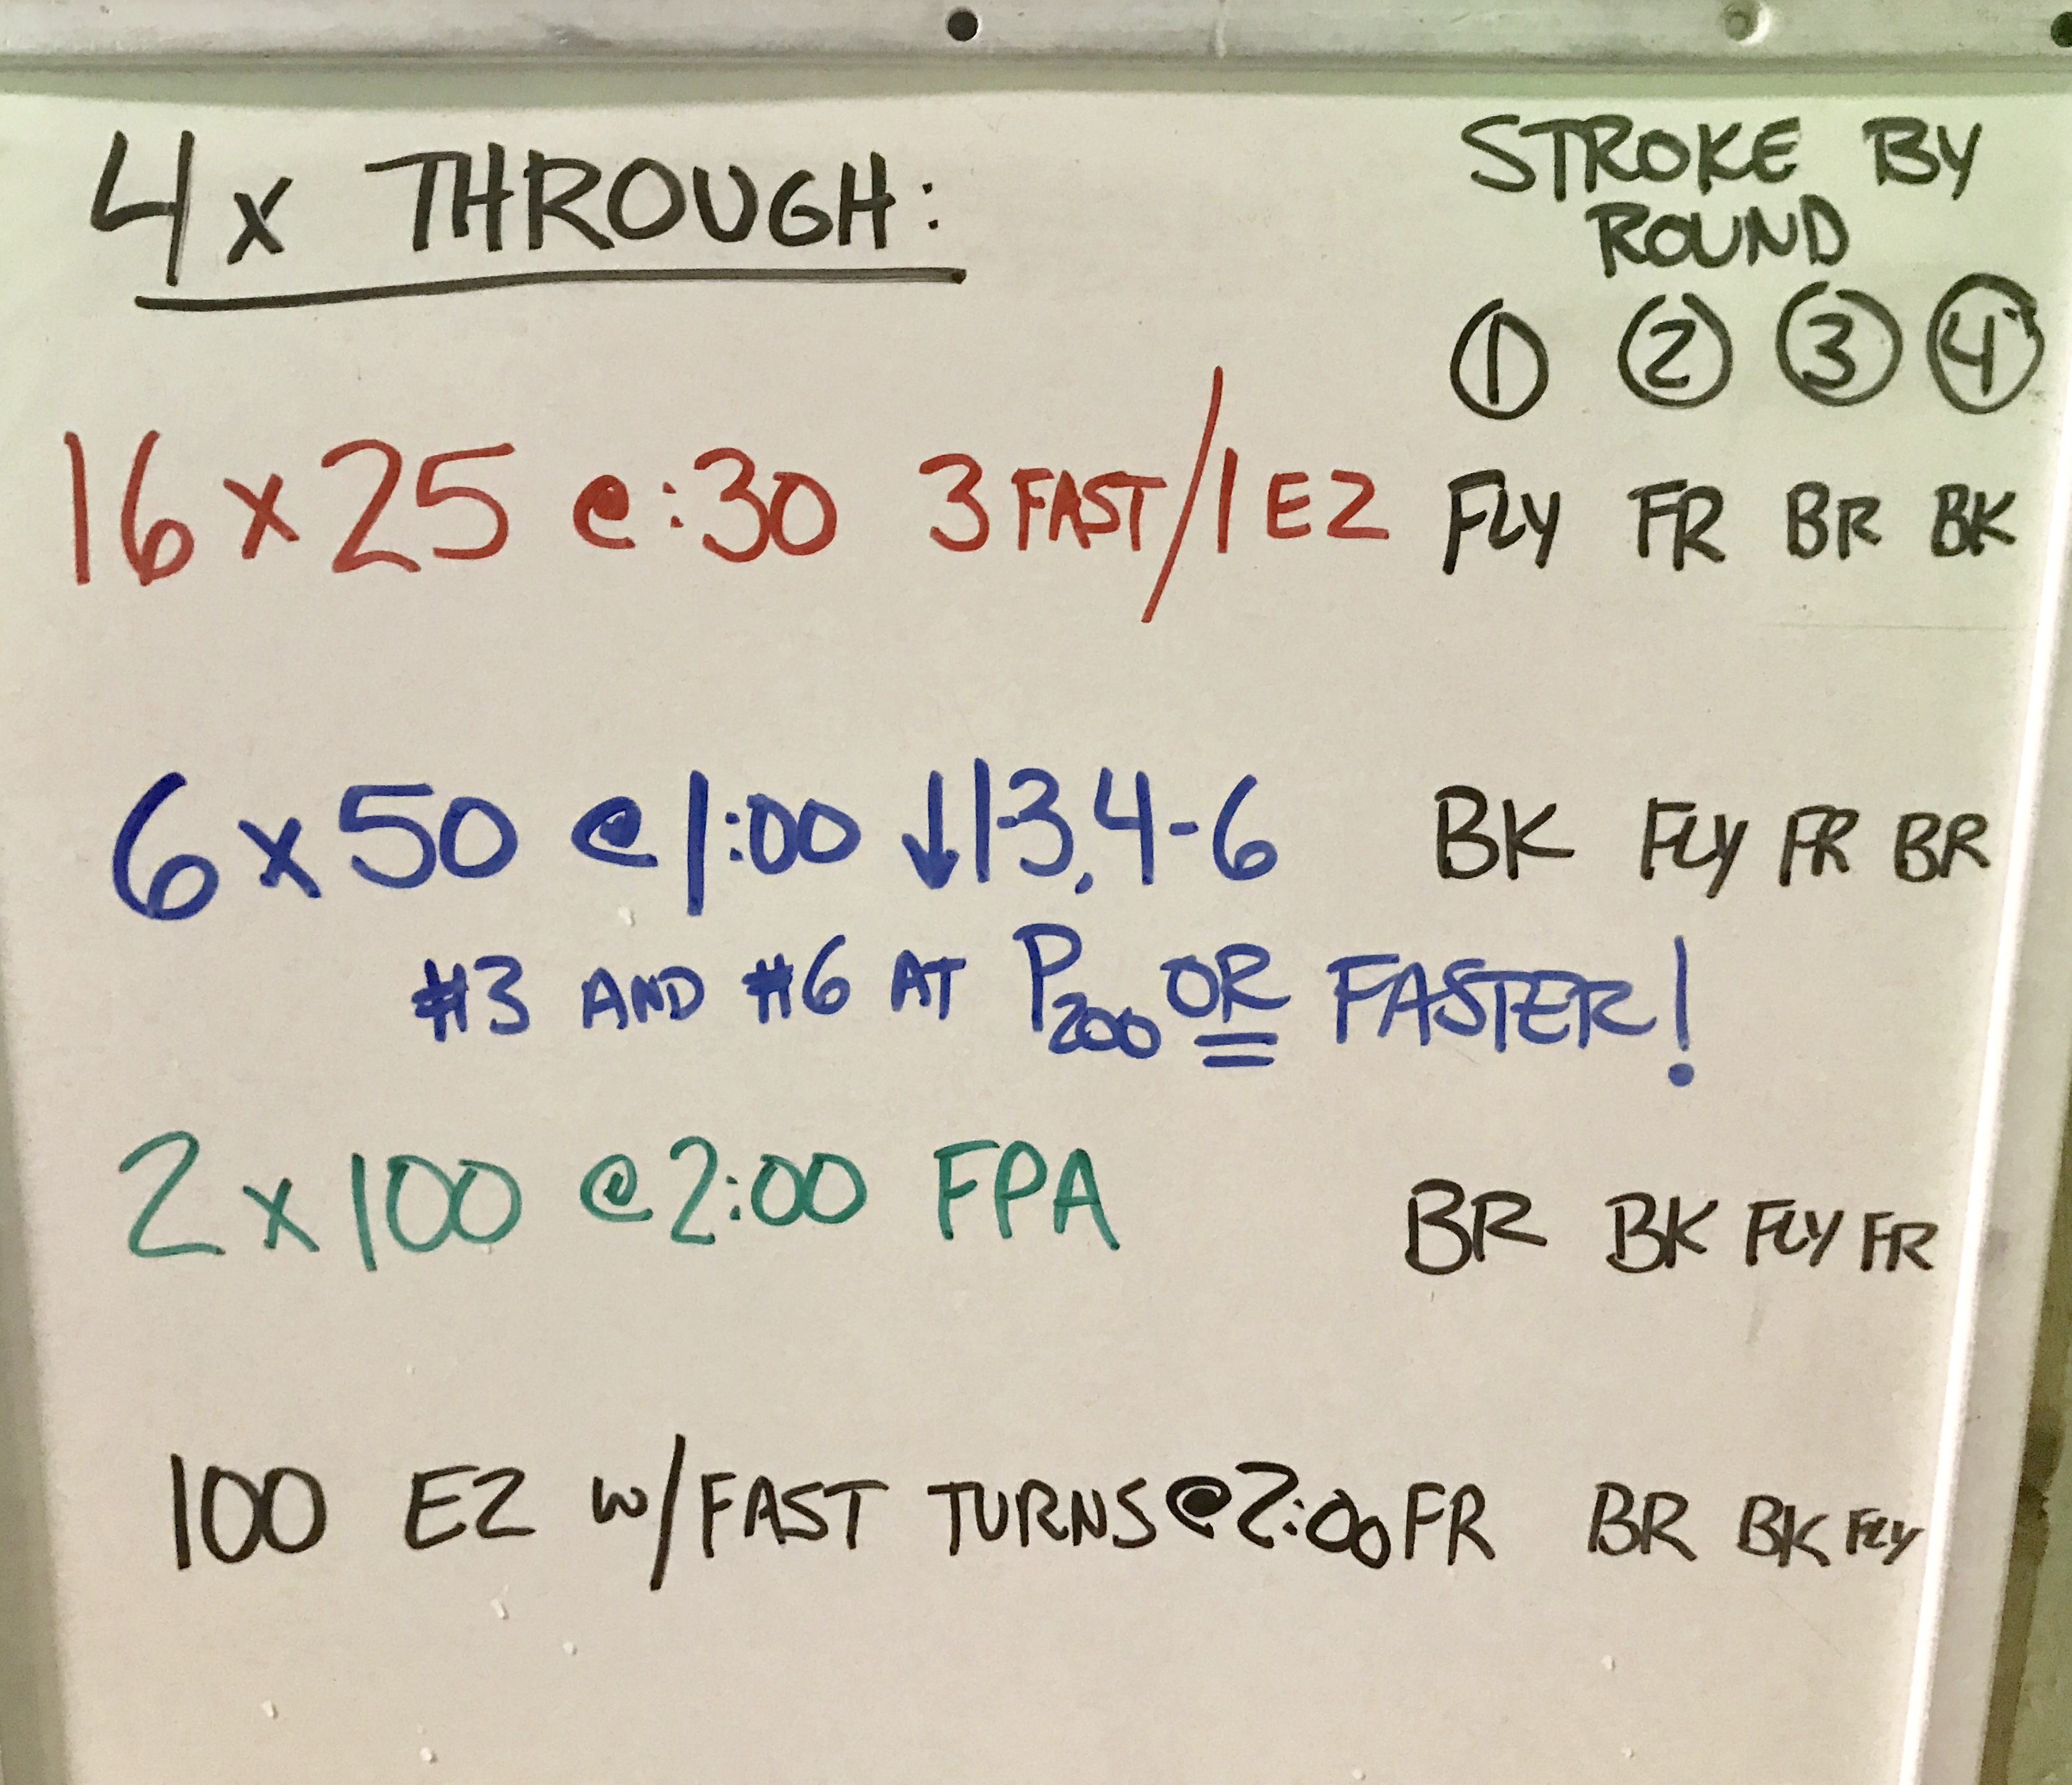 4x THROUGH:
STROKE BY
ROUND
① ② ③ ④
16 x 25 @ :30 3 FAST/1 EZ FLY FR BR BK
6 x 50 @ 1:00 ↓1-3, 4-6 BK FLY FR BR
#3 AND #6 AT P200 OR FASTER!
2 x 100 @ 2:00 FPA BR BK FLY FR
100 EZ w/FAST TURNS @ 2:00 FR BR BK FLY